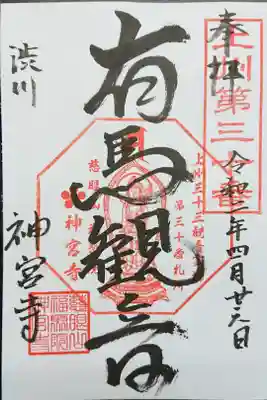 奉拝
上州第三十番
令和二年四月廿九日
有馬観音
上州三十三観音
第三十番札
神宮寺
渋川
神宮寺